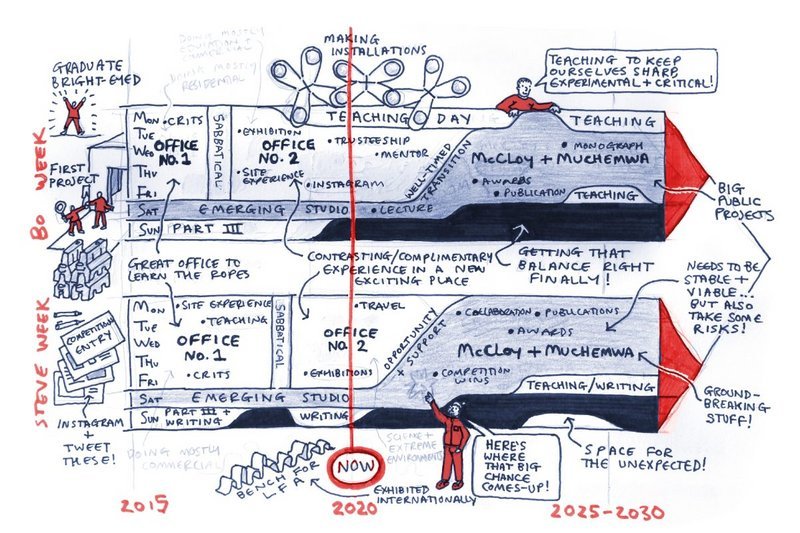 DOING MOSTLY
EDUCATION +
COMMERCIAL
DOING MOSTLY
RESIDENTIAL
MAKING
INSTALLATIONS
GRADUATE
BRIGHT-EYED
TEACHING TO KEEP
OURSELVES SHARP
EXPERIMENTAL + CRITICAL!
BO WEEK
FIRST
PROJECT
MON
TUE
WED
THU
FRI
SAT
SUN
• CRITS
OFFICE
NO. 1
SABBATICAL
• EXHIBITION
OFFICE
NO. 2
• SITE
EXPERIENCE
TEACHING DAY
• TRUSTEESHIP
• MENTOR
• INSTAGRAM
WELL-TIMED
TRANSITION
TEACHING
• MONOGRAPH
McCLOY + MUCHEMWA
• AWARDS
• PUBLICATION
TEACHING
EMERGING STUDIO
• LECTURE
PART III
BIG
PUBLIC
PROJECTS
GREAT OFFICE TO
LEARN THE ROPES
CONTRASTING/COMPLIMENTARY
EXPERIENCE IN A NEW
EXCITING PLACE
GETTING THAT
BALANCE RIGHT
FINALLY!
NEEDS TO BE
STABLE +
VIABLE...
BUT ALSO
TAKE SOME
RISKS!
STEVE WEEK
COMPETITION
ENTRY
INSTAGRAM
+
TWEET
THESE!
MON
TUE
WED
THU
FRI
SAT
SUN
• SITE EXPERIENCE
• TEACHING
OFFICE
NO. 1
• CRITS
SABBATICAL
• TRAVEL
OFFICE
NO. 2
• EXHIBITIONS
OPPORTUNITY
× SUPPORT
• COLLABORATION
• PUBLICATIONS
• AWARDS
McCLOY + MUCHEMWA
• COMPETITION
WINS
TEACHING/WRITING
EMERGING STUDIO
PART III +
WRITING
WRITING
GROUND-
BREAKING
STUFF!
DOING MOSTLY
COMMERCIAL
BENCH FOR
LFA
NOW
EXHIBITED
INTERNATIONALLY
SCIENCE +
EXTREME
ENVIRONMENTS
HERE'S
WHERE
THAT BIG
CHANCE
COMES-UP!
SPACE FOR
THE UNEXPECTED!
2015
2020
2025-2030